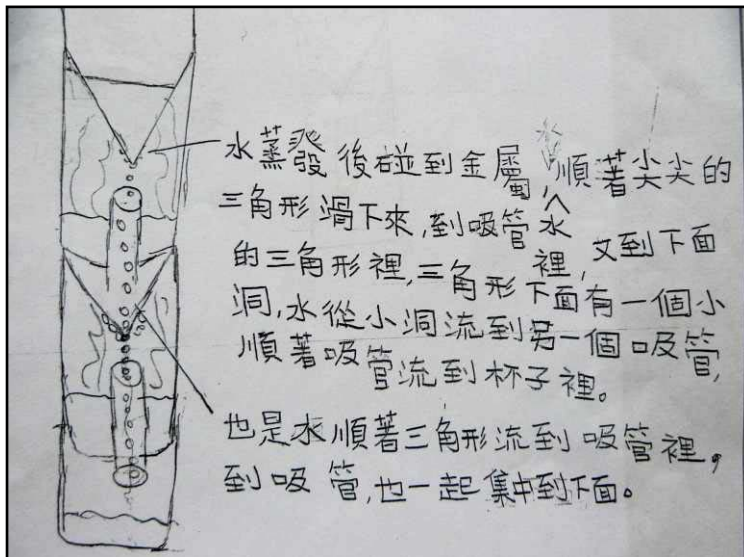 水蒸發後碰到金屬順著尖尖的
三角形滑下來,到吸管裡,又到下面
的三角形裡,三角形下面有一個小
洞,水從小洞流到另一個吸管,
順著吸管流到杯子裡。
也是水順著三角形流到吸管裡,
到吸管,也一起集中到下面。